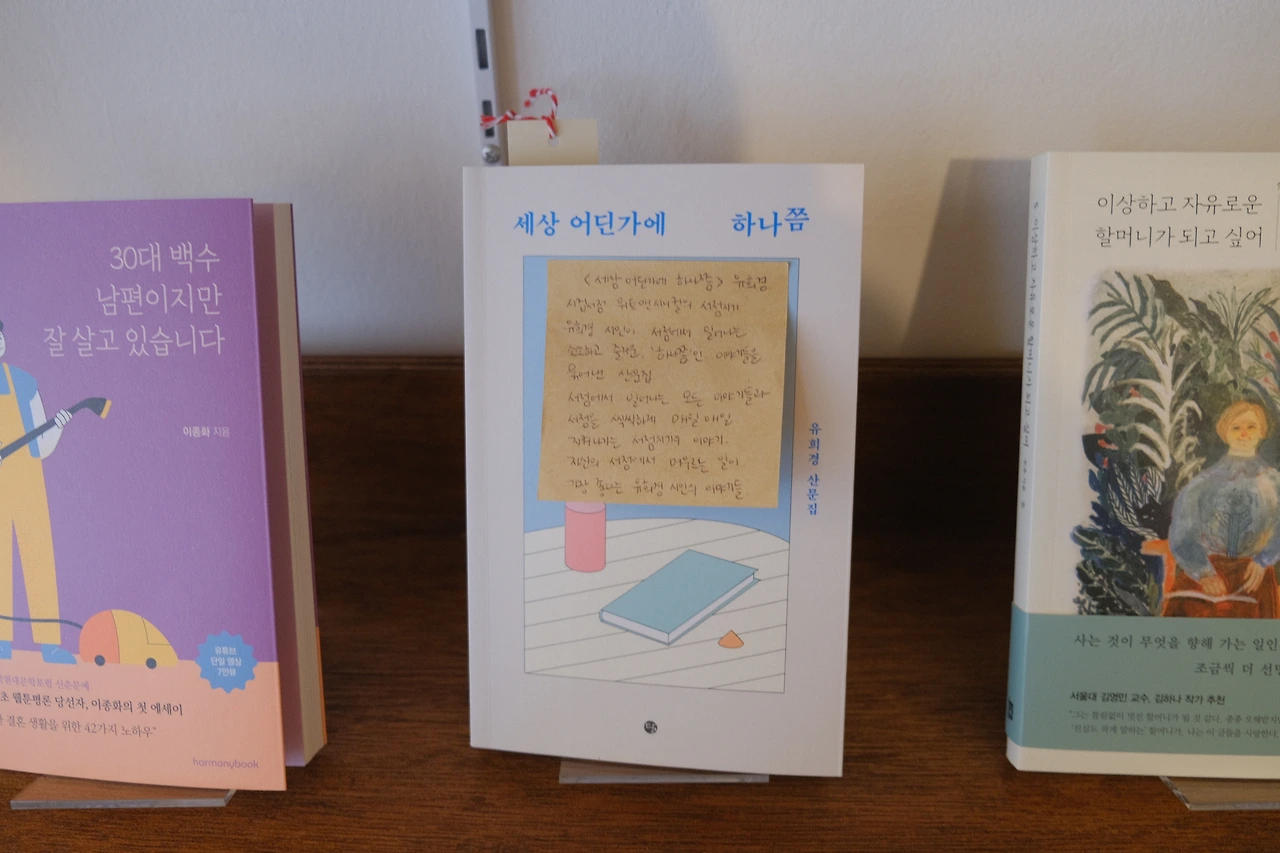 30대 백수
남편이지만
잘 살고 있습니다
이종화 지음
유튜브
단일 영상
7만뷰
신춘문예
초 웹툰평론 당선자, 이종화의 첫 에세이
결혼 생활을 위한 42가지 노하우"
harmonybook
세상 어딘가에 하나쯤
<세상 어딘가에 하나쯤> 유희경
시집서점 위트앤시니컬의 서점지기
유희경 시인이 서점에서 일어나는
소소하고 즐거운, '하나쯤'인 이야기들을
묶어낸 산문집
서점에서 일어나는 모든 이야기들과
서점을 씩씩하게 매일매일
지켜나가는 서점지기의 이야기.
자신의 서점에서 머무르는 일이
가장 좋다는 유희경 시인의 이야기들.
유희경 산문집
이상하고 자유로운
할머니가 되고 싶어
이상하고 자유로운 할머니가 되고 싶어
사는 것이 무엇을 향해 가는 일인
조금씩 더 선명
서울대 김영민 교수, 김하나 작가 추천
할머니가, 나는 이 글들을 사랑한다.